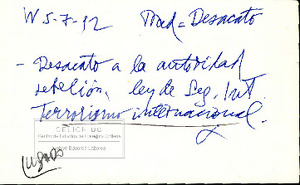 W 5-7-12 Trad = Desacato
- Desacato a la autoridad
rebelión, ley de Seg. Int
Terrorismo internacional.
CELICH UC